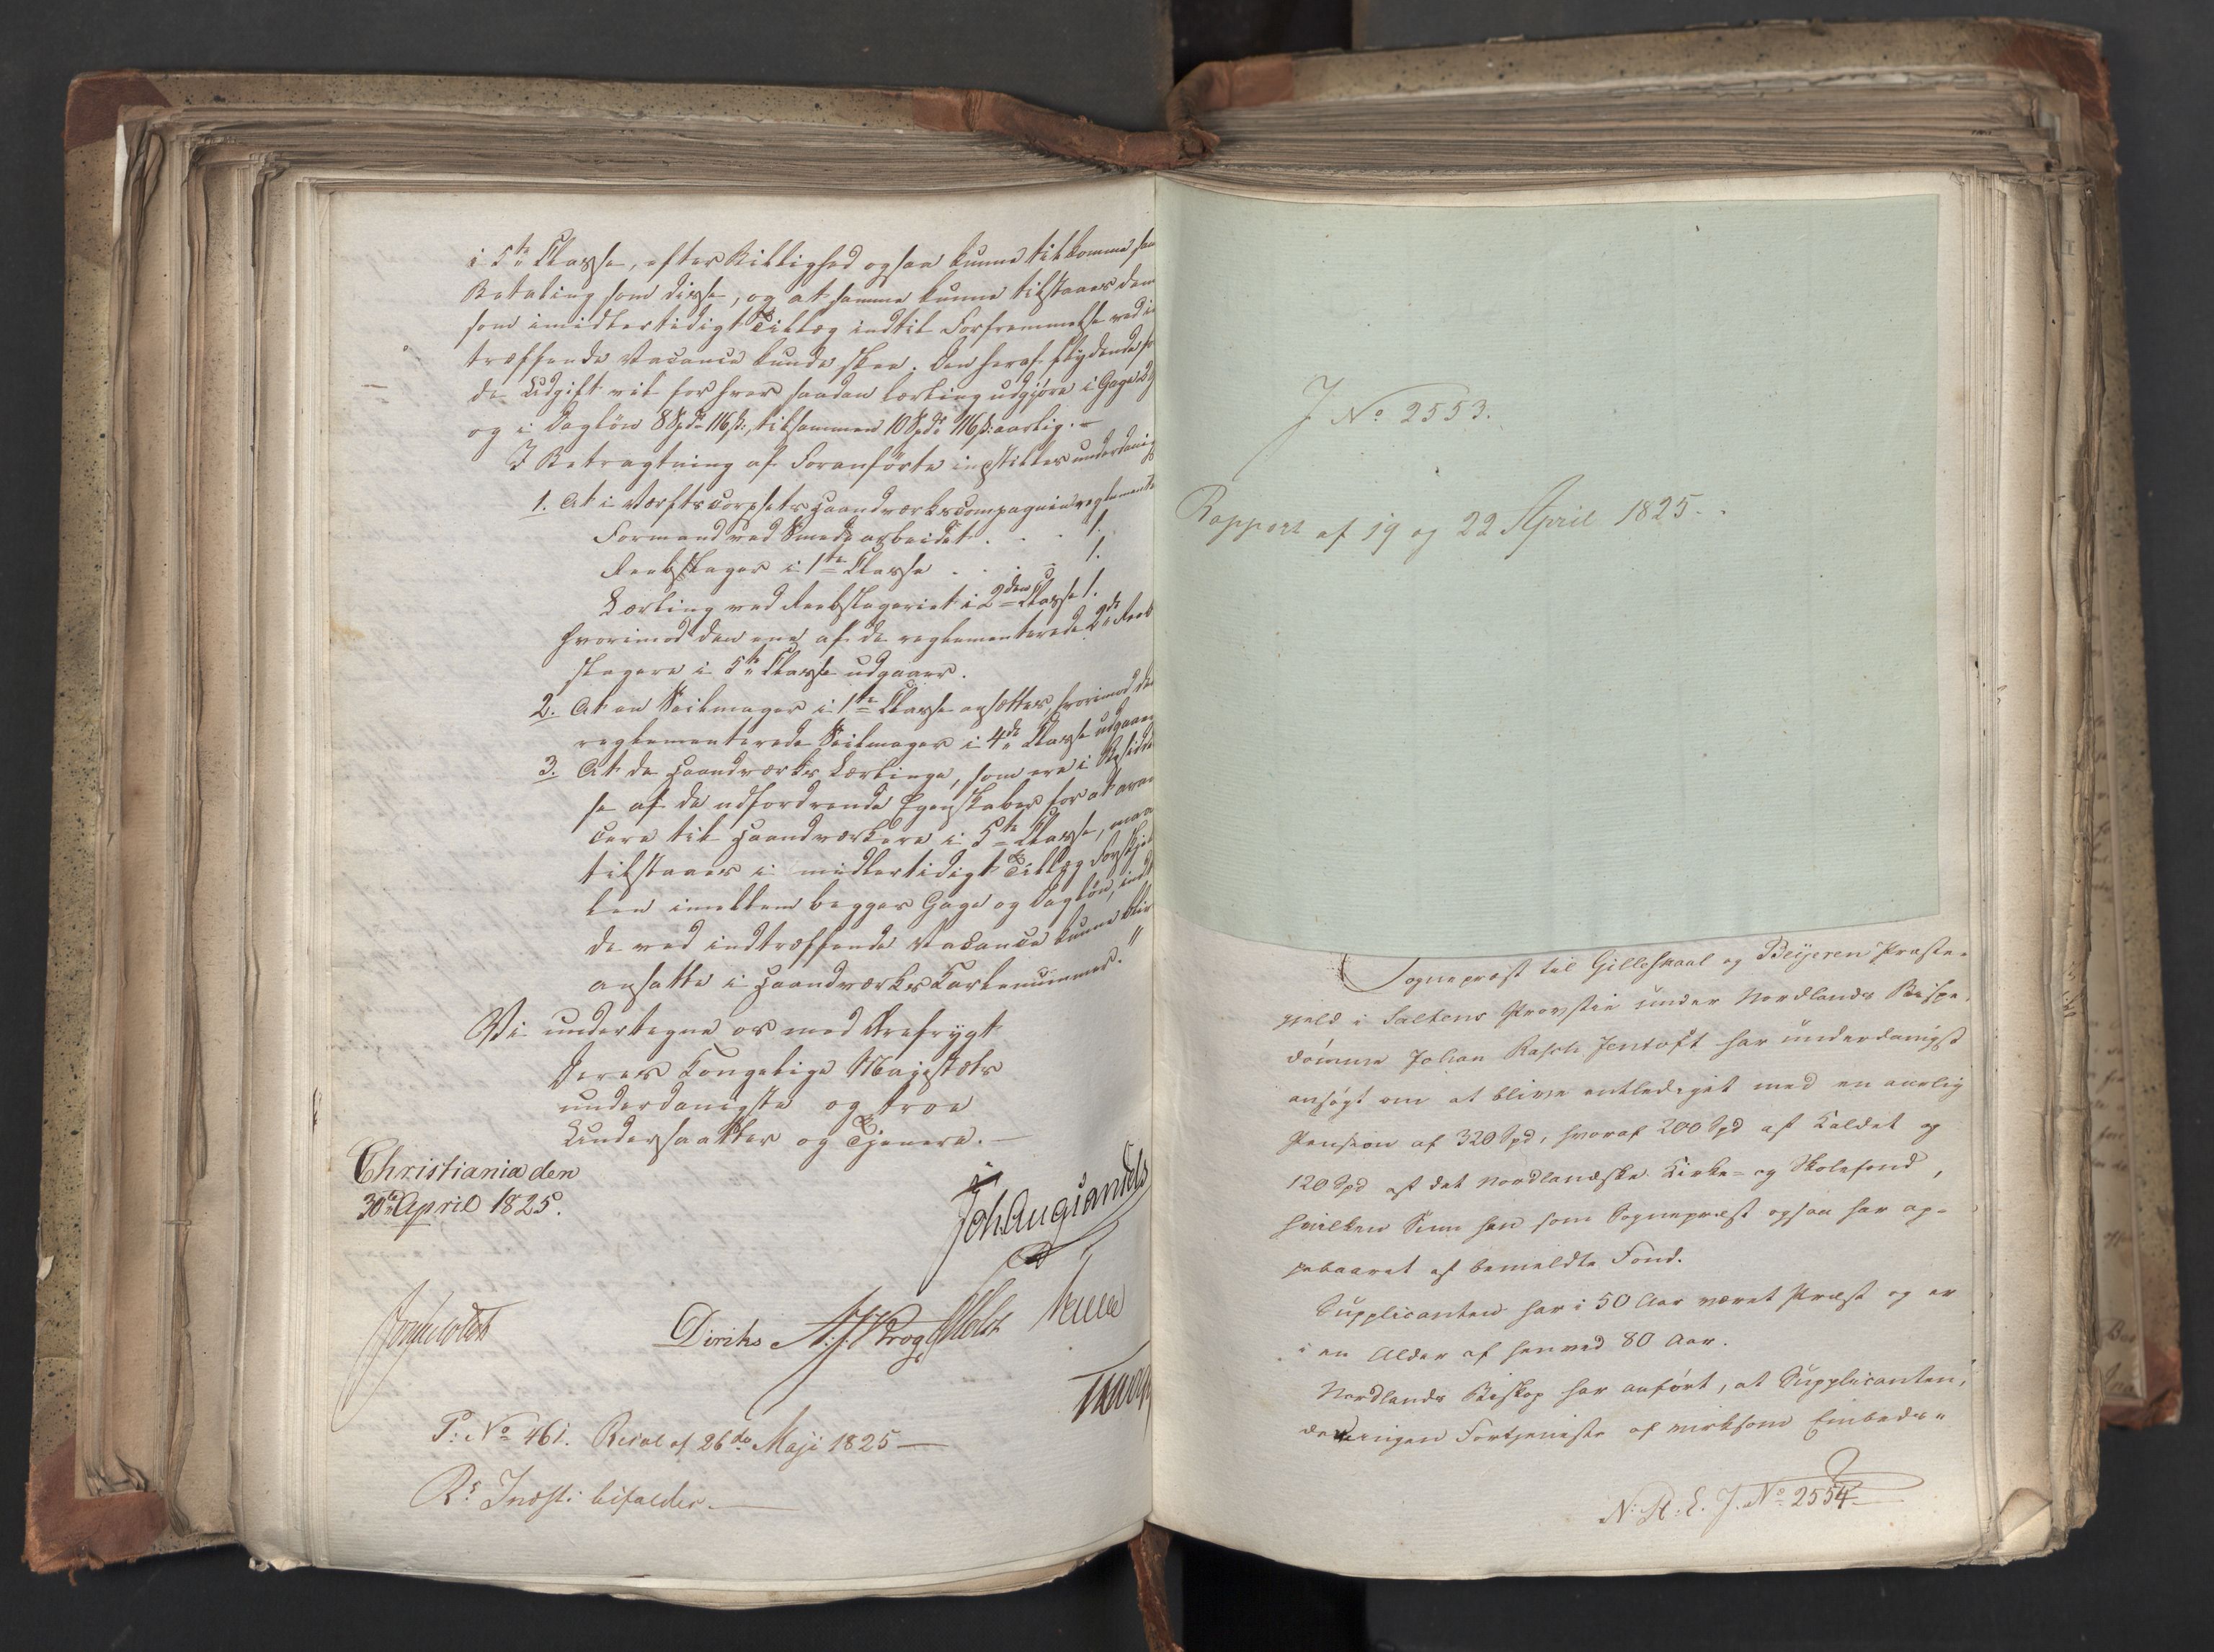 i 5te Classe, efter Billighed ogsaa kunne tilkomme
Betaling som disse, og at samme kunne tilstaaes dem
som imidlertidigt Tillæg indtil Forfremmelse ved
træffende Vacance kunde skee. Den heraf flydende
de Udgift vil for hver saadan Lærling udgjøre i Gage
og i Dagløn 8 Spd 116 s:, tilsammen 10 Spd: 116 s: aarlig. –
I Betragtning af Foranførte indstilles underdanigst
1. At i Værftscorpsets Haandværkscompagnie reglementeres
Formand ved Smedearbeidet . . . 1.
Reebslager i 1ste Classe . . . 1.
Lærling ved Reebslageriet i 2den Classe 1.
hvorimod den ene af de reglementerede 2de Reeb
slagere i 5te Classe udgaaer.
2. At en Seilmager i 1ste Classe ansættes, hvorimod den
reglementerede Seilmager i 4de Classe udgaaer
3. At de Haandværks Lærlinge, som ere i Besiddel
se af de udfordrende Egenskaber for at avan
cere til Haandværkere i 5te Classe, maa
tilstaaes i midlertidigt Tillæg Forskjel
len imellem begges Gage og Dagløn, indtil
de ved indtræffende Vacance kunne blive
ansatte i Haandværks Karlenummer."
Vi undertegne os med Ærefrygt
Deres Kongelige Majestæts
underdanigste og troe
Undersaatter og Tjenere. –
Christiania den
30te April 1825.
Joh Aug Sandels
Sommerfeldt Diriks A. J. Krog Holst
Motzfeldt
P: No 461. Resol af 26de Maji 1825 –
Rs Indst: bifaldes. –
J No 2553.
Rapport af 19 og 22 April 1825.
Sognepræst til Gilleskaal og Beijeren Præste-
gjeld i Saltens Provstie under Nordlands Bispe-
dømme Johan Rasch Jentoft har underdanigst
ansøgt om at blive entlediget med en aarlig
Pension af 320 Spd, hvoraf 200 Spd af Kaldet og
120 Spd af det Nordlandske Kirke- og Skolefond,
hvilken Sum han som Sognepræst ogsaa har op-
pebaaret af bemeldte Fond.
Supplicanten har i 50 Aar været Præst og er
i en Alder af henved 80 Aar.
Nordlands Biskop har anført, at Supplicanten,
der ingen Fortjeneste af virksom Embeds-
N: R: E. J. No 2554